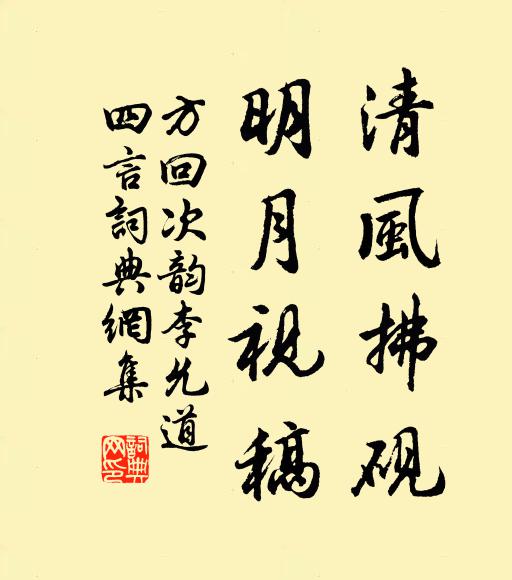 清風拂硯
明月視稿
方回次韵李允道
四言詞典網集
詞典网印